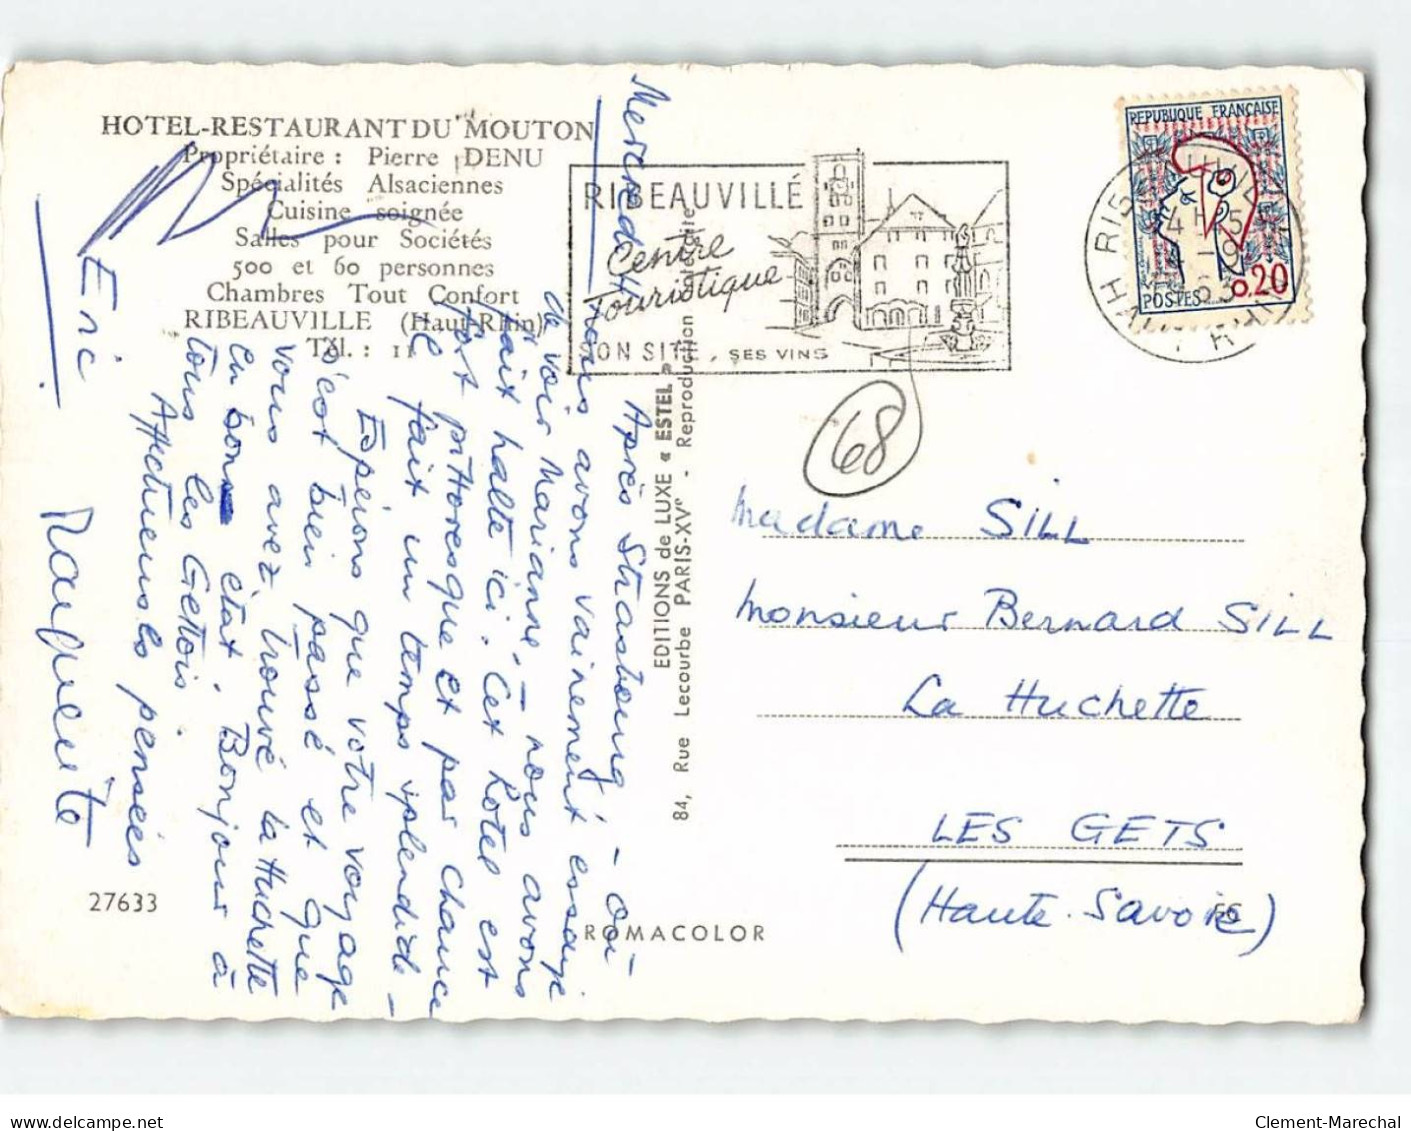 HOTEL-RESTAURANT DU MOUTON
Propriétaire : Pierre DENU
Spécialités Alsaciennes
Cuisine soignée
Salles pour Sociétés
500 et 60 personnes
Chambres Tout Confort
RIBEAUVILLE (Haut-Rhin)
Tél. : 11
Mercredi 4
Après Strasbourg, - où
nous avons vainement essayé
de voir Marianne, - nous avons
fait halte ici. Cet hotel est
fort pittoresque et par chance
il fait un temps splendide -
Espérons que votre voyage
s'est bien passé et que
vous avez trouvé la Huchette
en bon état. Bonjour à
tous les Getois.
Affectueuses pensées
Marguerite
Eric
27633
EDITIONS de LUXE « ESTEL »
84, Rue Lecourbe PARIS-XVe - Reproduction interdite
ROMACOLOR
RIBEAUVILLÉ
Centre
Touristique
SON SITE, SES VINS
REPUBLIQUE FRANÇAISE
POSTES 0,20
HAUT RHIN
68
Madame SILL
Monsieur Bernard SILL
La Huchette
LES GETS
(Haute-Savoie)
Clement-Marechal
delcampe.net